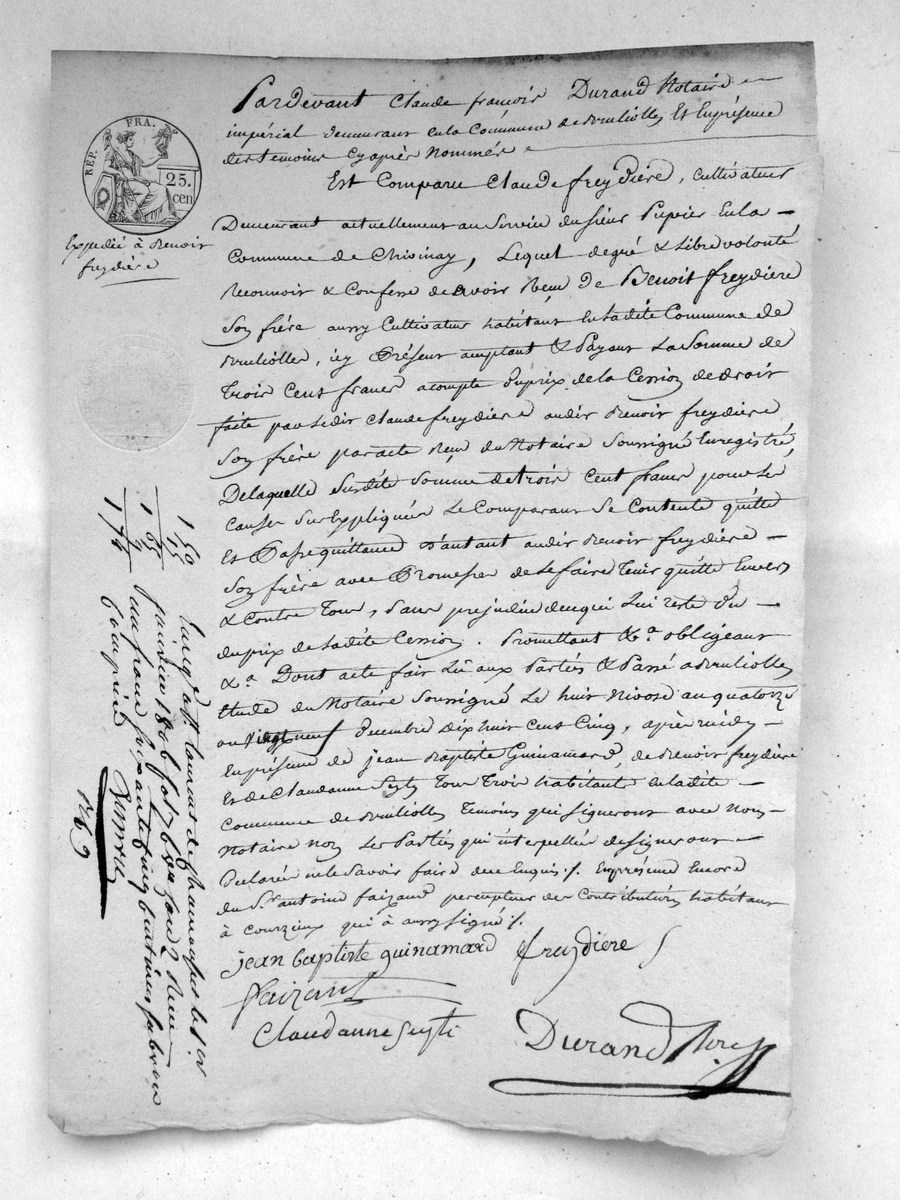 REP. FRA.
25.
cen
Expedié à Benoit
freydiére
Pardevant Claude françois Durand Notaire
impérial demeurant en la Commune de Brulliolles Et En présence
des temoins Cy après Nommés
Est Comparu Claude freydiére, Cultivateur
Demeurant actuellement au Service du Sieur Pupier En la
Commune de Chivinay, Lequel de gré & Libre volonté
Reconnoit & Confesse d'avoir Reçu De Benoit freydiére
Son frère aussy Cultivateur habitant En la dite Commune de
Brulliolles, icy Présent acceptant & Payant La Somme de
Trois Cent francs acompte du prix de la Cession de droit
faite par Ledit Claude freydiére audit Benoit freydiére
Son frère par acte Reçu du Notaire Soussigné Enregistré
De laquelle Susdite Somme de trois Cent francs pour Les
Causes Sus Expliquées Le Comparant Se Contente quitte
Et Passe quittance D'autant audit Benoit freydiére
Son frère avec Promesse de Le faire Tenir quitte Envers
& Contre Tous, Sans prejudice de ce qui Lui reste Du
du prix de La dite Cession. Promettant &a obligeant
&a Dont acte fait Lu aux Parties & Passé a Brulliolles
Etude du Notaire Soussigné Le huit Nivose an quatorze
ou vingt neuf Decembre Dix huit Cent Cinq, après midy
En présence de jean Baptiste Guinamard, de Benoit freydiére
Et de Claudanne Seyty Tous Trois habitant En la dite
Commune de Brulliolles Temoins qui Signeront avec Nous
Notaire Non Les Parties qui interpellées de Signer ont
Déclaré ne le Savoir faire de ce Enquis /. En présence Encore
du Sr antoine faizant percepteur des Contributions habitant
à Courzieux qui à aussy Signé /.
jean baptiste guinamard freydiere
faizant
Claudanne Seyti
Durand Nore
1 50
15
1 65
9
1 74
janvier 1806 fol 76
un franc soixante cinq centimes subvention
Comprise